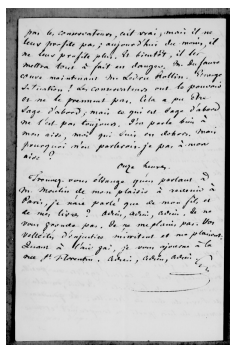 par les conservateurs, cit vrai; mais il ne
leur profite pas; aujourd'hui du moins, il
ne leur profite plus. Et bientôt, il les
mettra tout à fait en danger. M. Dufaure
couve maintenant M. Ledru Rollin. Etrange
situation! Les conservateurs ont le pouvoir
et ne le prennent pas. Cela a pu être
sage d'abord, mais ce qui est sage d'abord
ne l'est pas toujours. J'en parle bien à
mon aise, moi qui suis en dehors. Mais
pourquoi n'en parlerais-je pas à mon
aise?
Onze heures.
Trouvez-vous étrange qu'en partant
M. Moulin de mon plaisir à revenir à
Paris, je n'aie parlé que de mon fils et
de mes livres? Adieu, Adieu, Adieu. Je ne
vous gronde pas. Je ne me plains pas. Vos
velléités d'injustice m'irritent et me plaisent.
Quant à l'air gai, je vous ajourne à la
rue St Florentin. Adieu, Adieu, Adieu.